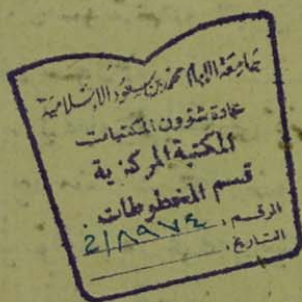 جامعة الإمام محمد بن سعود الإسلامية
عمادة شؤون المكتبات
المكتبة المركزية
قسم المخطوطات
الرقم: ٨٩٧٤/2
التاريخ: